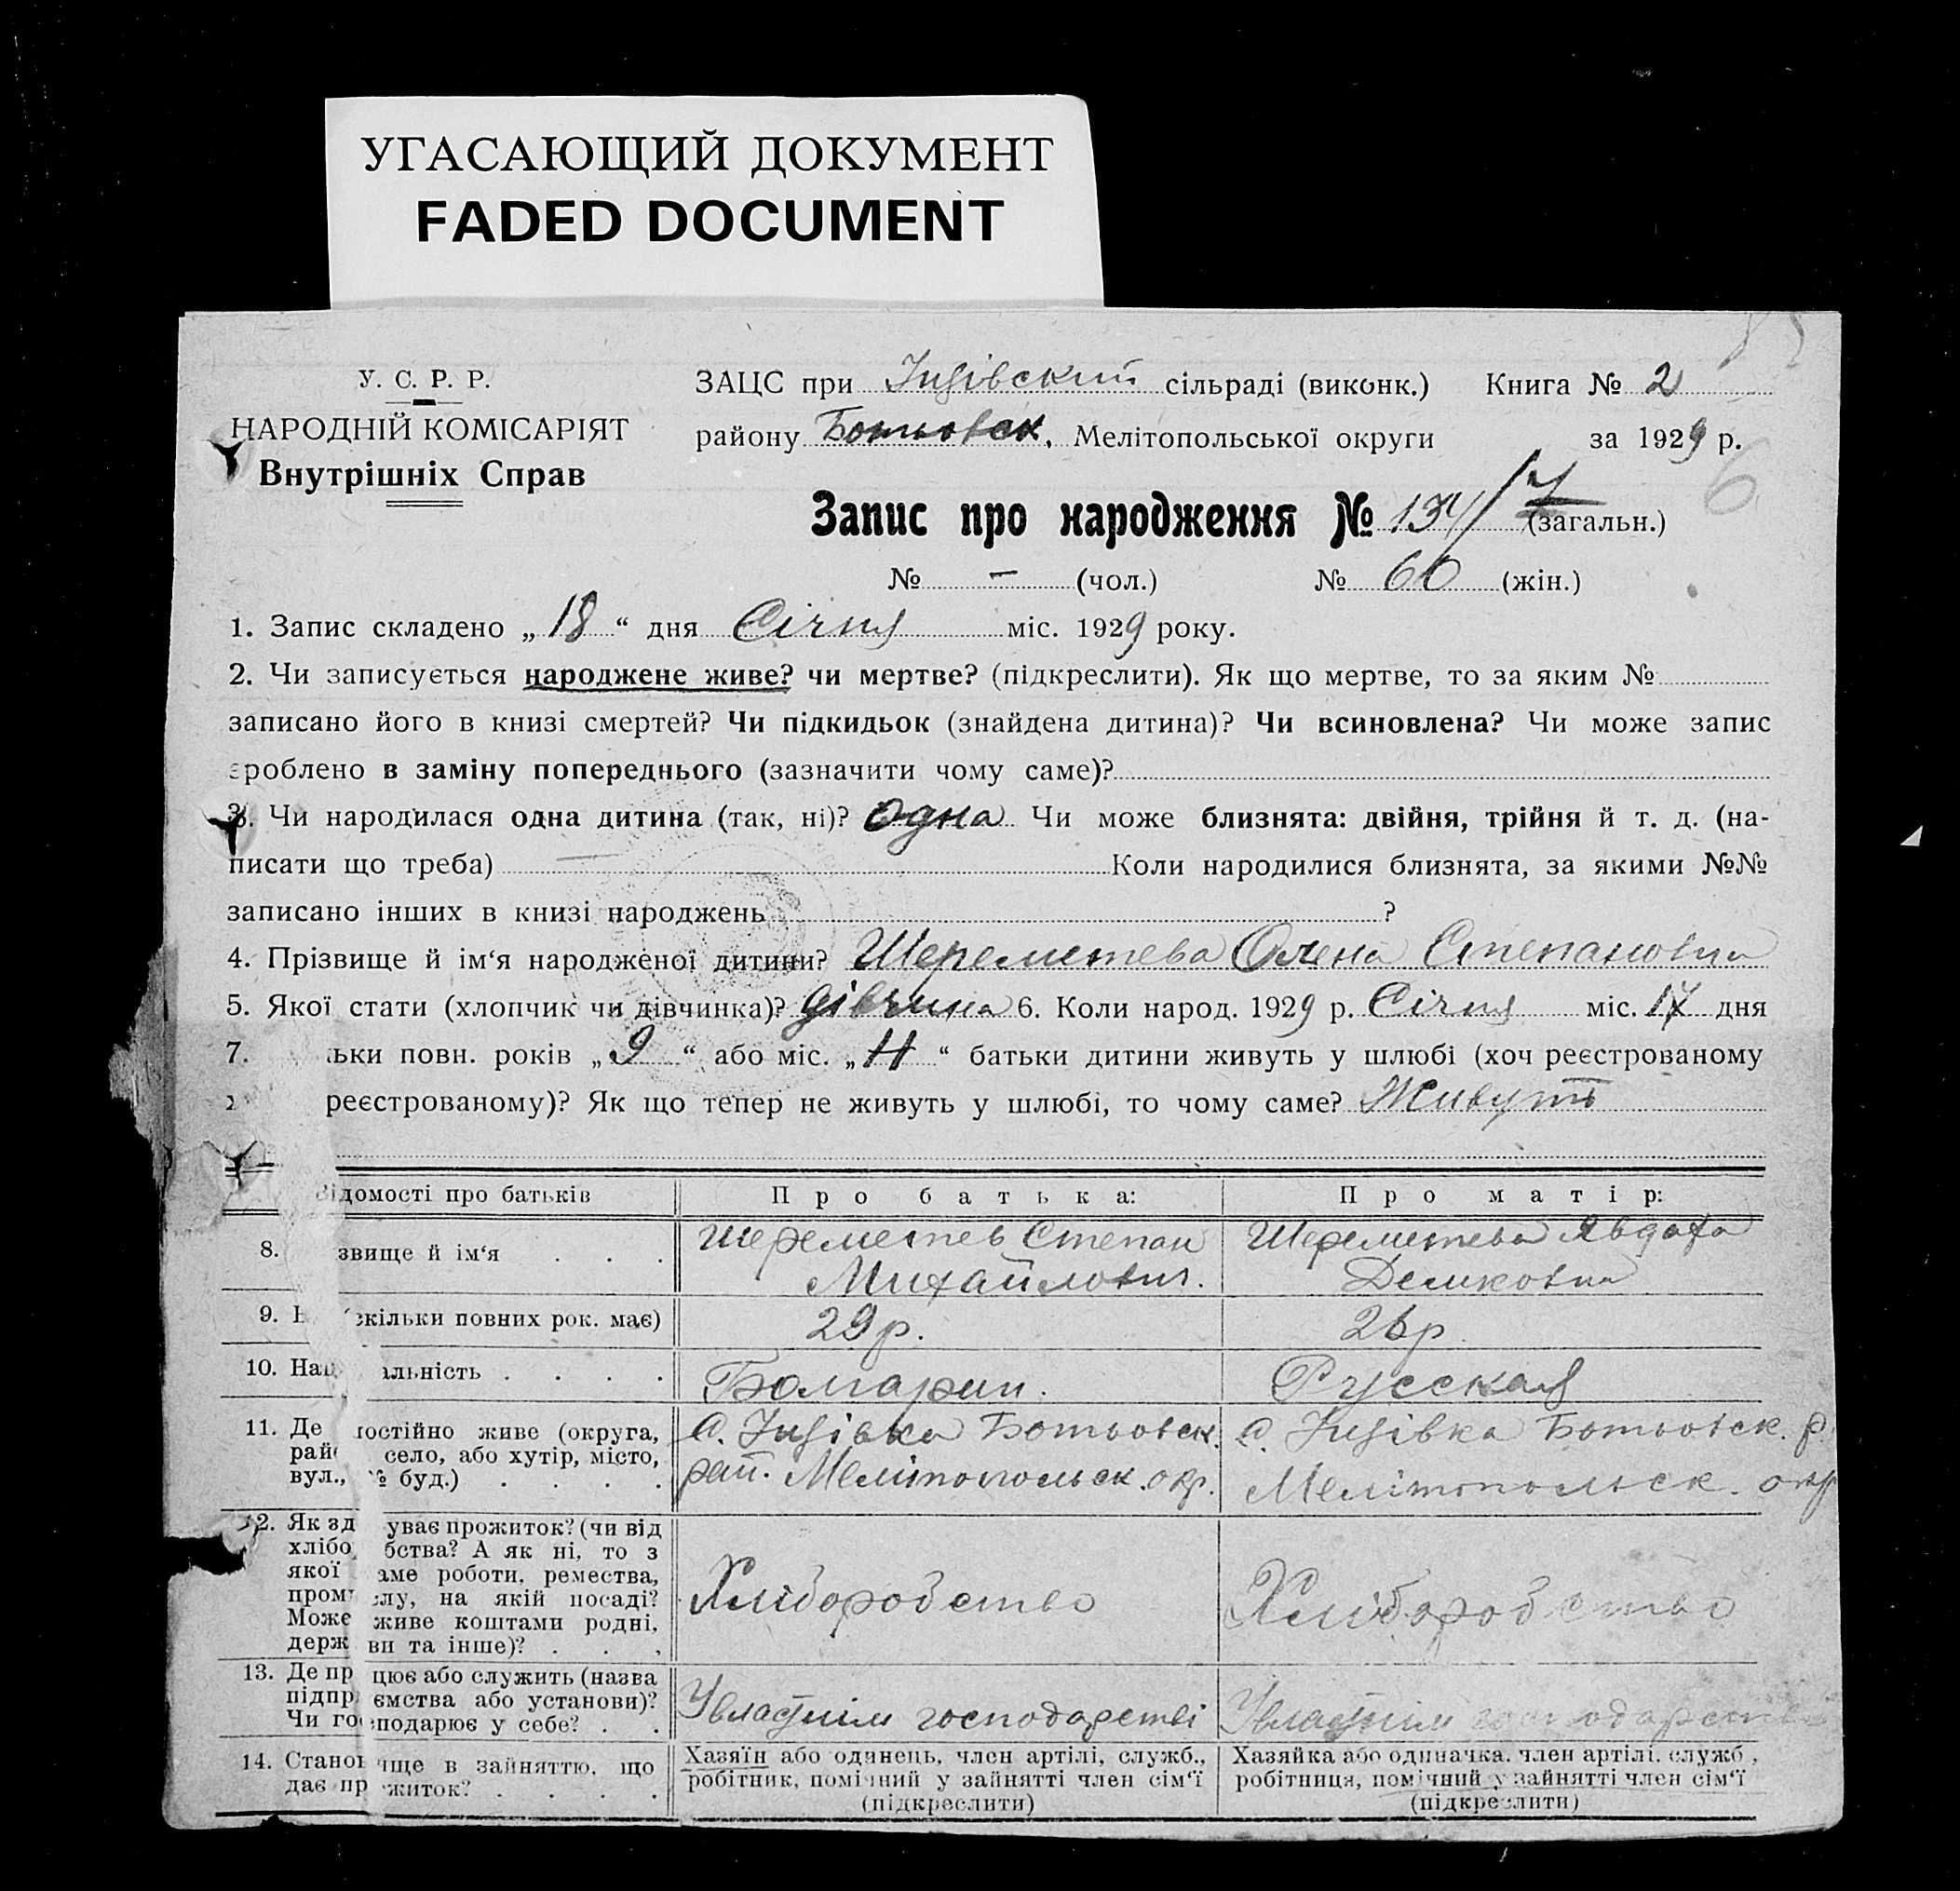 УГАСАЮЩИЙ ДОКУМЕНТ
FADED DOCUMENT
У. С. Р. Р.
НАРОДНІЙ КОМІСАРІЯТ
Внутрішніх Справ
ЗАЦС при Інзівский сільраді (виконк.) Книга № 2
району Ботьовск. Мелітопольської округи за 1929 р.
6
Запис про народження № 134/7 (загальн.)
№ — (чол.) № 60 (жін.)
1. Запис складено „18“ дня Січня міс. 1929 року.
2. Чи записується народжене живе? чи мертве? (підкреслити). Як що мертве, то за яким №
записано його в книзі смертей? Чи підкидьок (знайдена дитина)? Чи всиновлена? Чи може запис
зроблено в заміну попереднього (зазначити чому саме)?
3. Чи народилася одна дитина (так, ні)? Одна Чи може близнята: двійня, трійня й т. д. (на-
писати що треба) Коли народилися близнята, за якими №№
записано інших в книзі народжень ?
4. Прізвище й ім‘я народженої дитини? Шереметева Олена Степановна
5. Якої стати (хлопчик чи дівчинка)? дівчина 6. Коли народ. 1929 р. Січня міс. 17 дня
7. ьки повн. років „9“ або міс. „Н“ батьки дитини живуть у шлюбі (хоч реєстрованому
реєстрованому)? Як що тепер не живуть у шлюбі, то чому саме? Живуть
Відомості про батьків Про батька: Про матір:
8. звище й ім‘я . . . Шереметев Степан Михайлович. Шереметева Явдоха Демковна
9. скільки повних рок. має) 29 р. 26 р
10. На альність . . . . Болгарин. Русская
11. Де постійно живе (округа, с. Інзівка Ботьовск. с. Інзівка Ботьовск. р.
рай село, або хутір, місто, рай. Мелітопольск. окр. Мелітопольск. окр
вул., № буд.) . . . .
12. Як зд уває прожиток? (чи від
хлібо бства? А як ні, то з
якої саме роботи, ремества, Хліборобство Хліборобство
пром слу, на якій посаді?
Може живе коштами родні,
держ ви та інше)? . . .
13. Де пр цює або служить (назва
підпр ємства або установи)? У власнім господарстві У власнім господарстві
Чи го сподарює у себе? . .
14. Станов ище в зайняттю, що Хазяїн або одинець, член артілі, служб., Хазяйка або одиначка, член артілі, служб.,
дає пр житок? . . . . робітник, помічний у зайнятті член сім‘ї робітниця, помічний у зайнятті член сім‘ї
(підкреслити) (підкреслити)